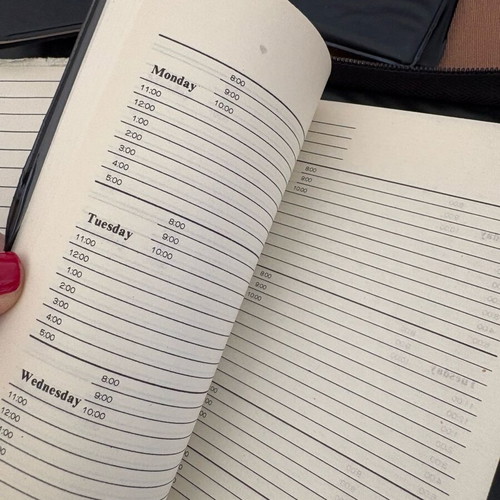 8:00
Monday 9:00
11:00 10:00
12:00
1:00
2:00
3:00
4:00
5:00
8:00
Tuesday 9:00
11:00 10:00
12:00
1:00
2:00
3:00
4:00
5:00
8:00
Wednesday 9:00
11:00 10:00
12:00
1:00
2:00
8:00
9:00
10:00
8:00
9:00
10:00